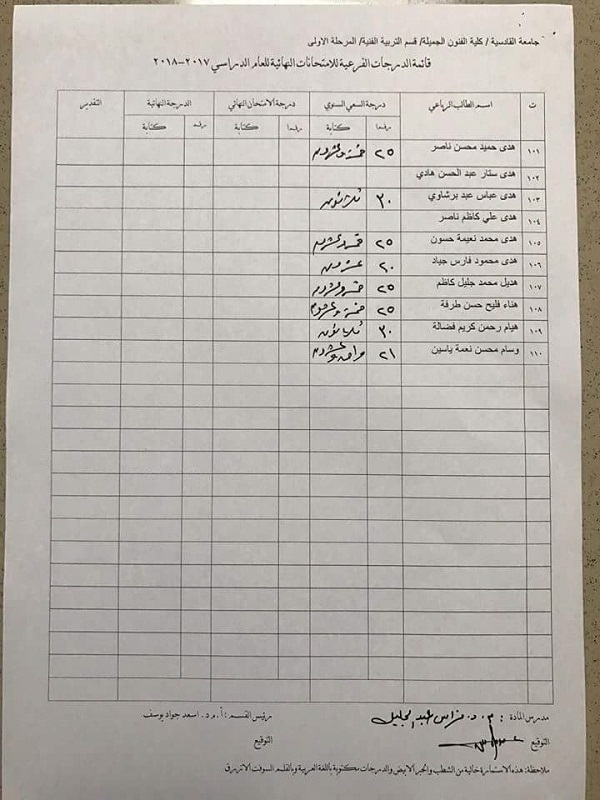 جامعة القادسية / كلية الفنون الجميلة/ قسم التربية الفنية/ المرحلة الاولى
قائمة الدرجات الفرعية للامتحانات النهائية للعام الدراسي ٢٠١٧-٢٠١٨
ت اسم الطالب الرباعي درجة السعي السنوي درجة الامتحان النهائي الدرجة النهائية التقدير
رقما كتابة رقما كتابة رقما كتابة
١٠١ هدى حميد محسن ناصر ٢٥ خمسة وعشرون
١٠٢ هدى ستار عبد الحسن هادي
١٠٣ هدى عباس عبد برشاوي ٣٠ ثلاثون
١٠٤ هدى علي كاظم ناصر
١٠٥ هدى محمد نعيمة حسون ٢٥ خمسة وعشرون
١٠٦ هدى محمود فارس جياد ٢٠ عشرون
١٠٧ هديل محمد جليل كاظم ٢٥ خمسة وعشرون
١٠٨ هناء فليح حسن طرفة ٢٥ خمسة وعشرون
١٠٩ هيام رحمن كريم فضالة ٣٠ ثلاثون
١١٠ وسام محسن نعمة ياسين ٢١ واحد وعشرون
مدرس المادة : م.د. فراس عبد الجليل رئيس القسم : أ.م.د. اسعد جواد يوسف
التوقيع التوقيع
ملاحظة: هذه الاستمارة خالية من الشطب والحبر الابيض والدرجات مكتوبة باللغة العربية وبالقلم السوفت الازرق